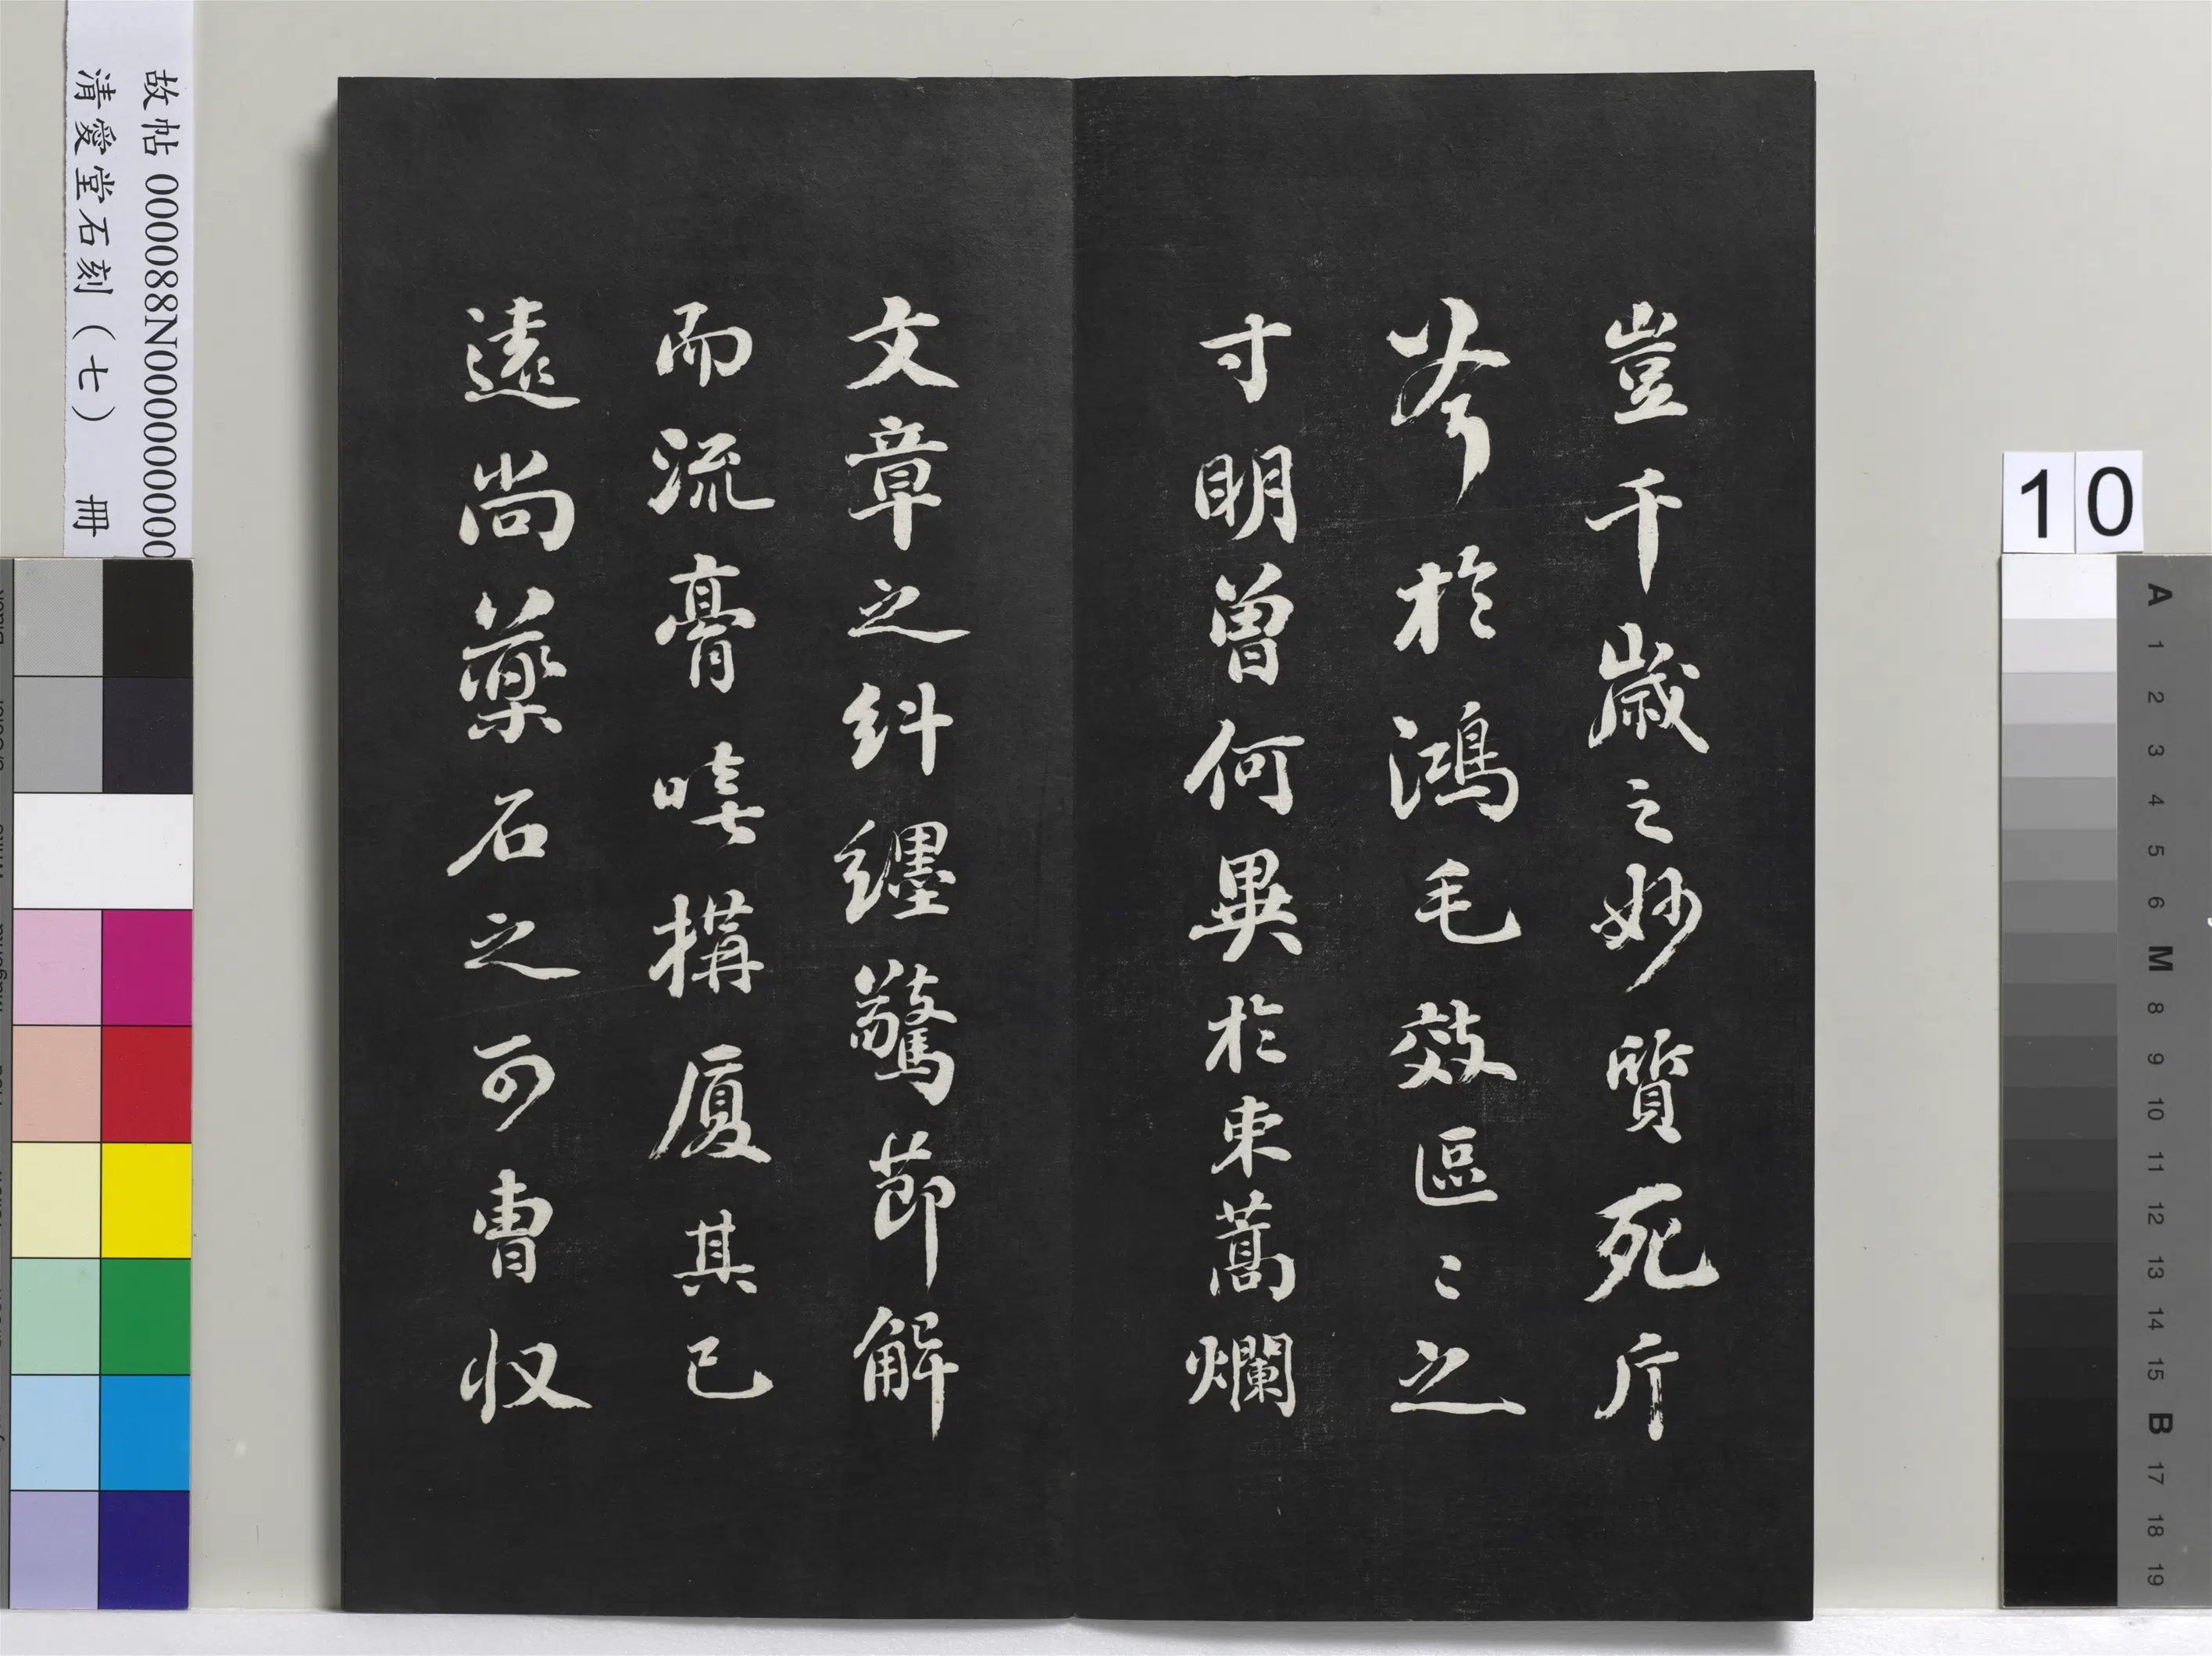 故帖 000088N000000000
清愛堂石刻（七） 冊
豈千歲之妙質死斤
斧於鴻毛效區〻之
寸明曾何異於束蒿爛
文章之糾纏驚節解
而流膏嘻構廈其已
遠尚藥石之可曹収
10
A
1
2
3
4
5
6
M
8
9
10
11
12
13
14
15
B
17
18
19